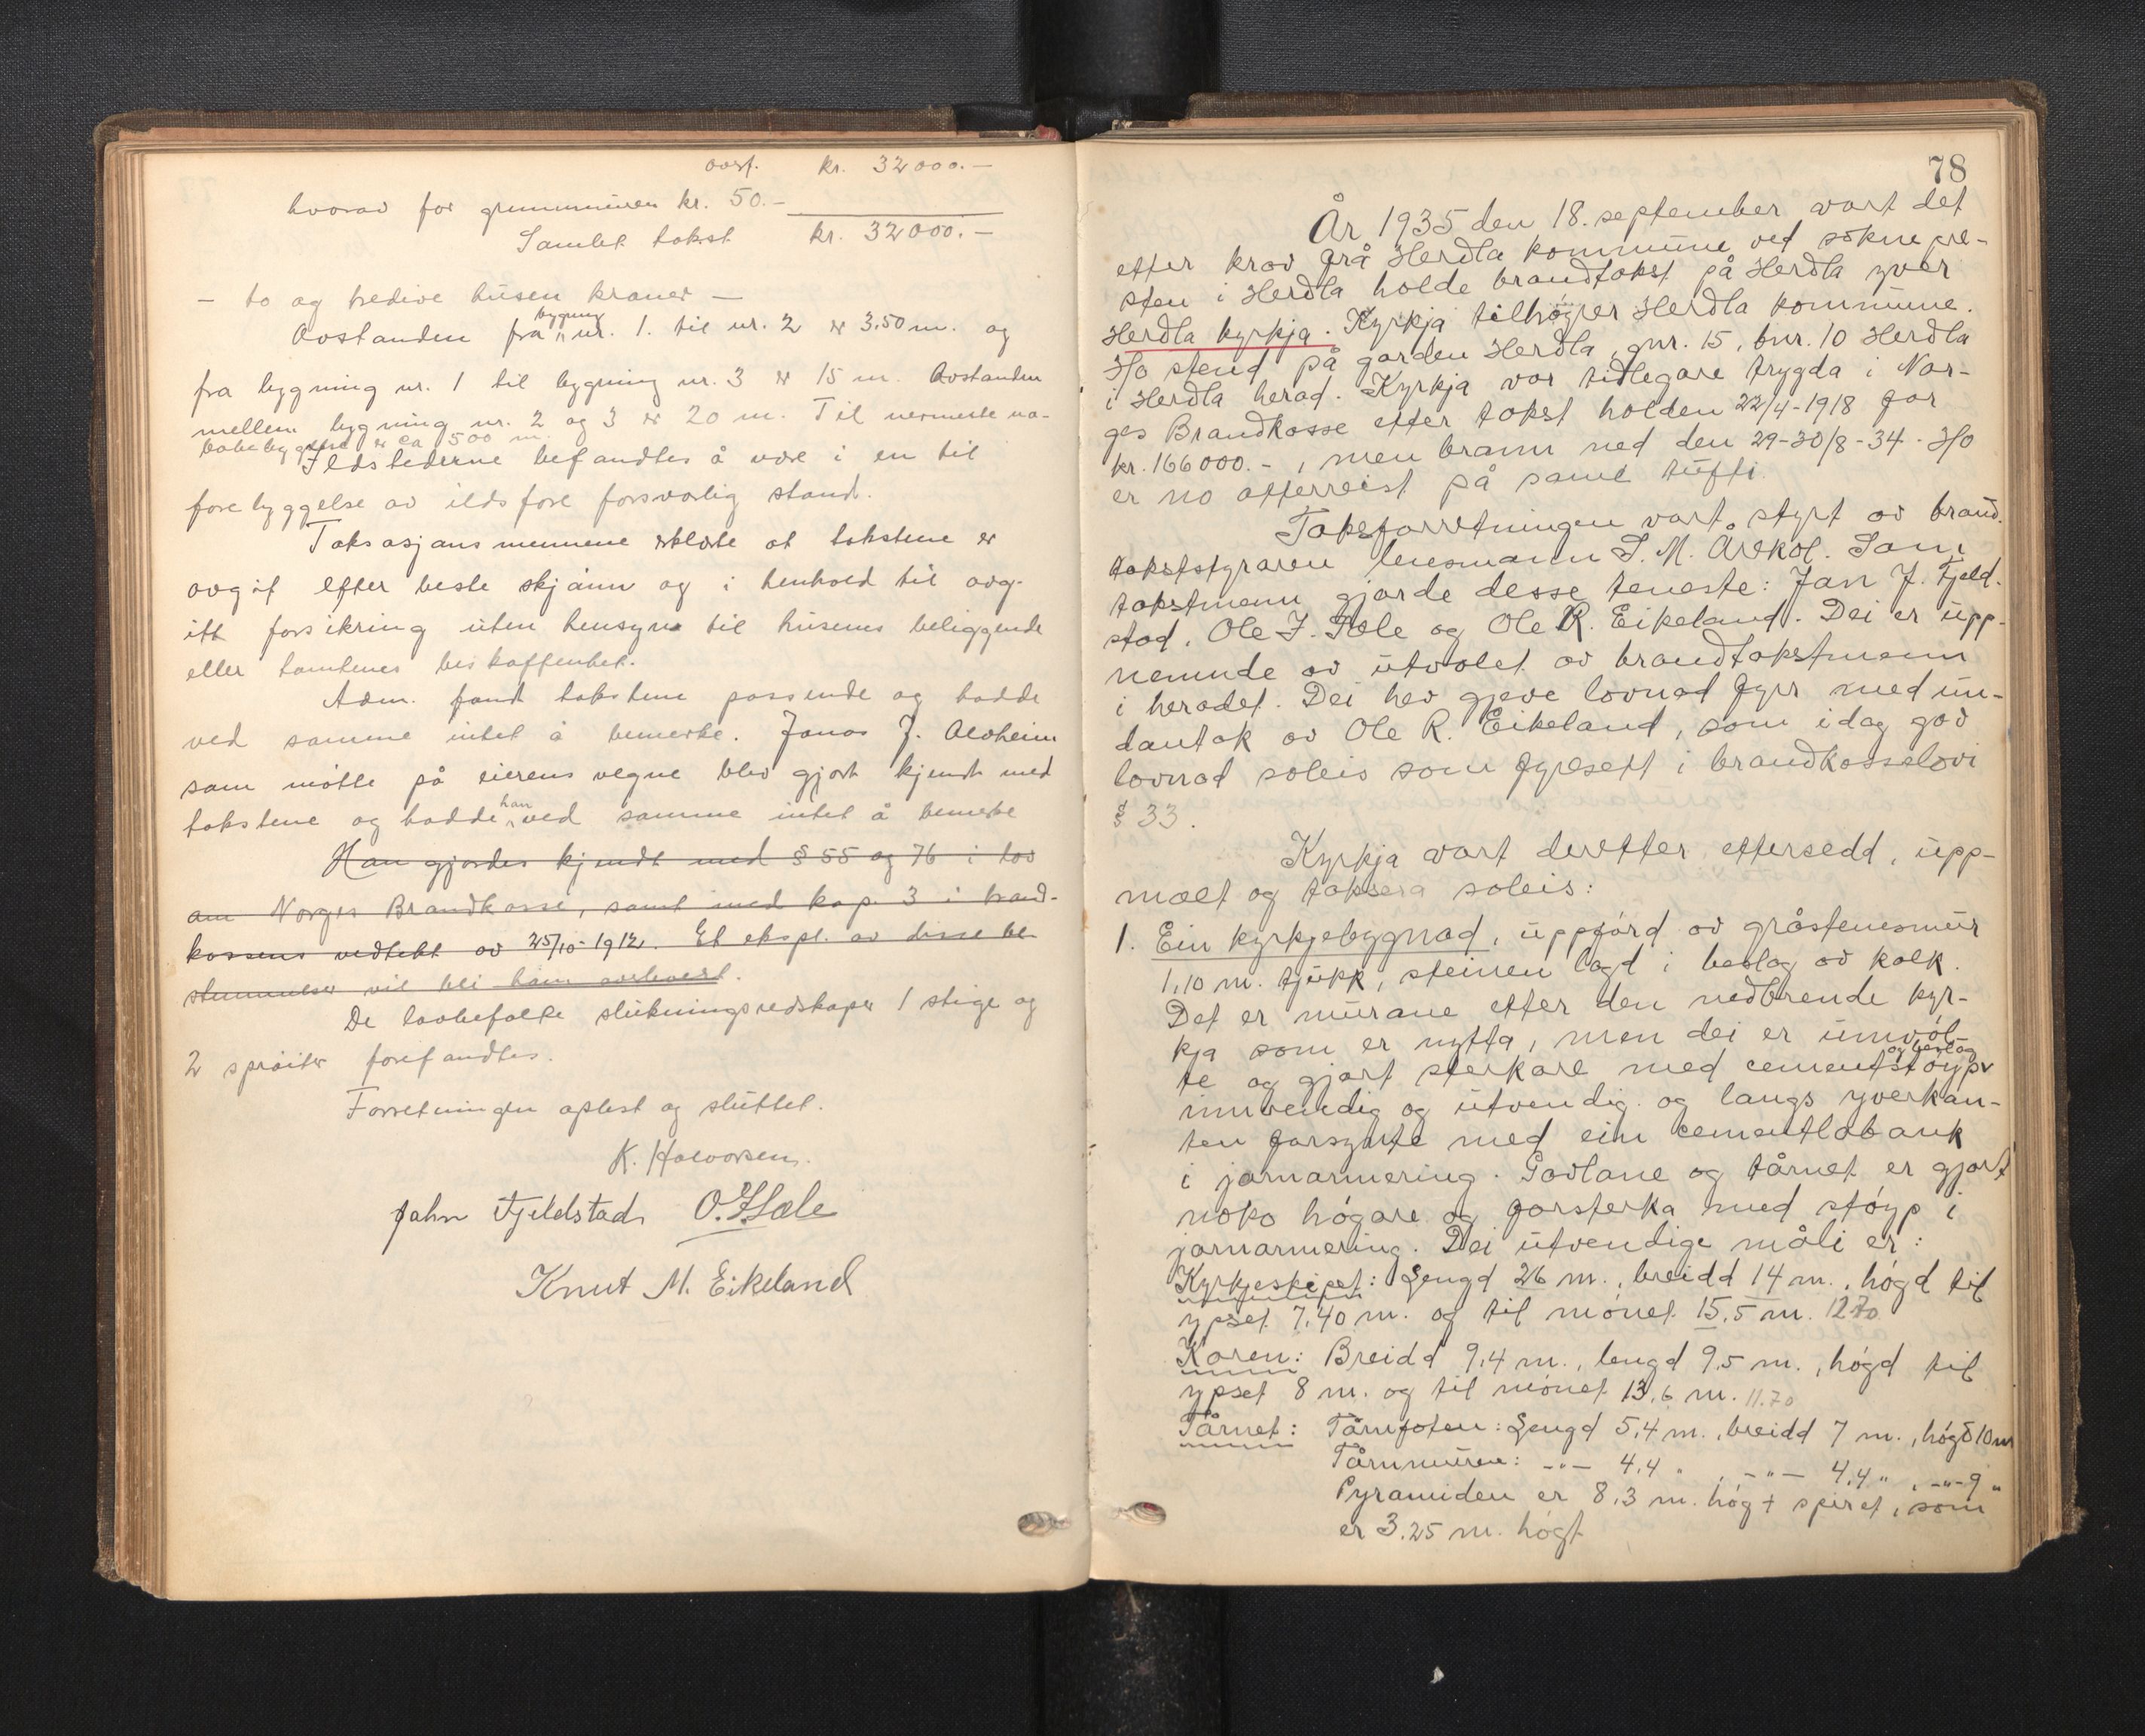 overf. kr. 32000.—
hvorav for grunnmuren kr. 50.—
Samlet takst kr. 32000.—
— to og tredive tusen kroner —
Avstanden fra bygning nr. 1. til nr. 2 er 3,50 m. og
fra bygning nr. 1 til bygning nr. 3 er 15 m. Avstanden
mellem bygning nr. 2 og 3 er 20 m. Til nermeste na-
bobebyggelse er ca 500 m.
Ildstederne befandtes å være i en til
forebyggelse av ildsfare forsvarlig stand.
Taksasjonsmennene erklærte at takstene er
avgit efter beste skjønn og i henhold til avg-
itt forsikring uten hensyn til husenes beliggende
eller tomtenes beskaffenhet.
Adm. fant takstene passende og hadde
ved samme intet å bemerke. Jonas J.
som møtte på eierens vegne blev gjort kjendt med
takstene og hadde han ved samme intet å bemerke
Han gjordes kjendt med § 55 og 76 i lov
om Norges Brandkasse, samt med kap. 3 i brand-
kassens vedtekt av 25/10-1912. Et ekspl. av disse be-
stemmelser vil bli ham overlevert.
De lovbefalte slukningsredskaper 1 stige og
2 sprøiter forefandtes.
Forretningen oplest og sluttet.
K. Halvorsen.
Jahn Fjeldstad O. J. Sæle
Knut M. Eikeland
78
År 1935 den 18. september vart det
etter krav frå Herdla kommune ved sokne pre-
sten i Herdla holde brandtakst på Herdla yver
Herdla kyrkja. Kyrkja tilhøyrer Herdla kommune.
Ho stend på garden Herdla, gnr. 15, bnr. 10 Herdla
i Herdla herad. Kyrkja var tidlegare trygda i Nor-
ges Brandkasse etter takst holden 22/4-1918 for
kr. 166000.-, men brann ned den 29-30/8-34. Ho
er no atterreist på same tufti.
Takstforretningen vart styrt av brand-
takststyraren lensmann J. M. Areklet. Som
takstmenn gjorde desse teneste: Jan J. Fjeld-
stad, Ole J. Sæle og Ole R. Eikeland. Dei er upp-
nemnde av utvalet av brandtakstmenn
i heradet. Dei hev gjeve lovnad fyrr med un-
dantak av Ole R. Eikeland, som idag gav
lovnad soleis som fyresett i brandkasselovi
§ 33.
Kyrkja vart deretter ettersedd, upp-
mælt og taksera soleis:
1. Ein kyrkjebygnad, uppførd av gråsteinsmur
1,10 m. tjukk, steinen lagd i beslag av kalk.
Det er murane etter den nedbrende kyr-
kja som er nytta, men dei er umvøl-
te og gjort sterkare med cementstøyp og beslag
innvendig og utvendig og langs yverkan-
ten forsynte med ein cementlabank
i jarnarmering. Gavlane og tårnet er gjort
noko høgare og forsterka med støyp i
jarnarmering. Dei utvendige måli er:
Kyrkjeskipet: Lengd 26 m., breidd 14 m., høgd til
ypset 7,40 m. og til mønet 15,5 m. 12.70
Koren: Breidd 9,4 m., lengd 9,5 m., høgd til
ypset 8 m. og til mønet 13,6 m. 11.70
Tårnet: Tårnfoten: Lengd 5,4 m., breidd 7 m., høgd 10 m
Tårnmuren: -"- 4,4 ", -"- 4,4 ", -"- 9 "
Pyramiden er 8,3 m. høg + spiret, som
er 3,25 m. høgt